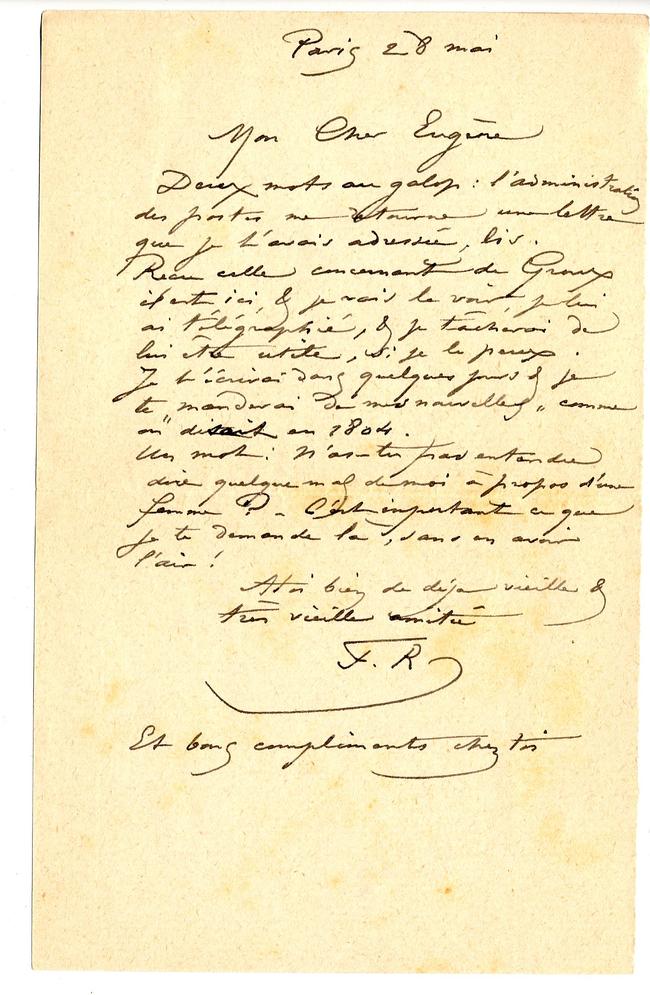 Paris 28 mai
Mon Cher Eugène
Deux mots au galop : l'administration
des postes me retourne une lettre
que je t'avais adressée, lis.
Recu celle concernant de Groux
il est ici, & je vais le voir, je lui
ai télégraphié, & je tâcherai de
lui être utile, si je le peux.
Je t'écrirai dans quelques jours & je
te "manderai de mes nouvelles" comme
on disait en 1804.
Un mot : N'as-tu pas entendu
dire quelque mal de moi à propos d'une
femme ? - C'est important ce que
je te demande là, sans en avoir
l'air !
A toi bien de déja vieille &
très vieille amitié
F. R
Et bons compliments chez toi